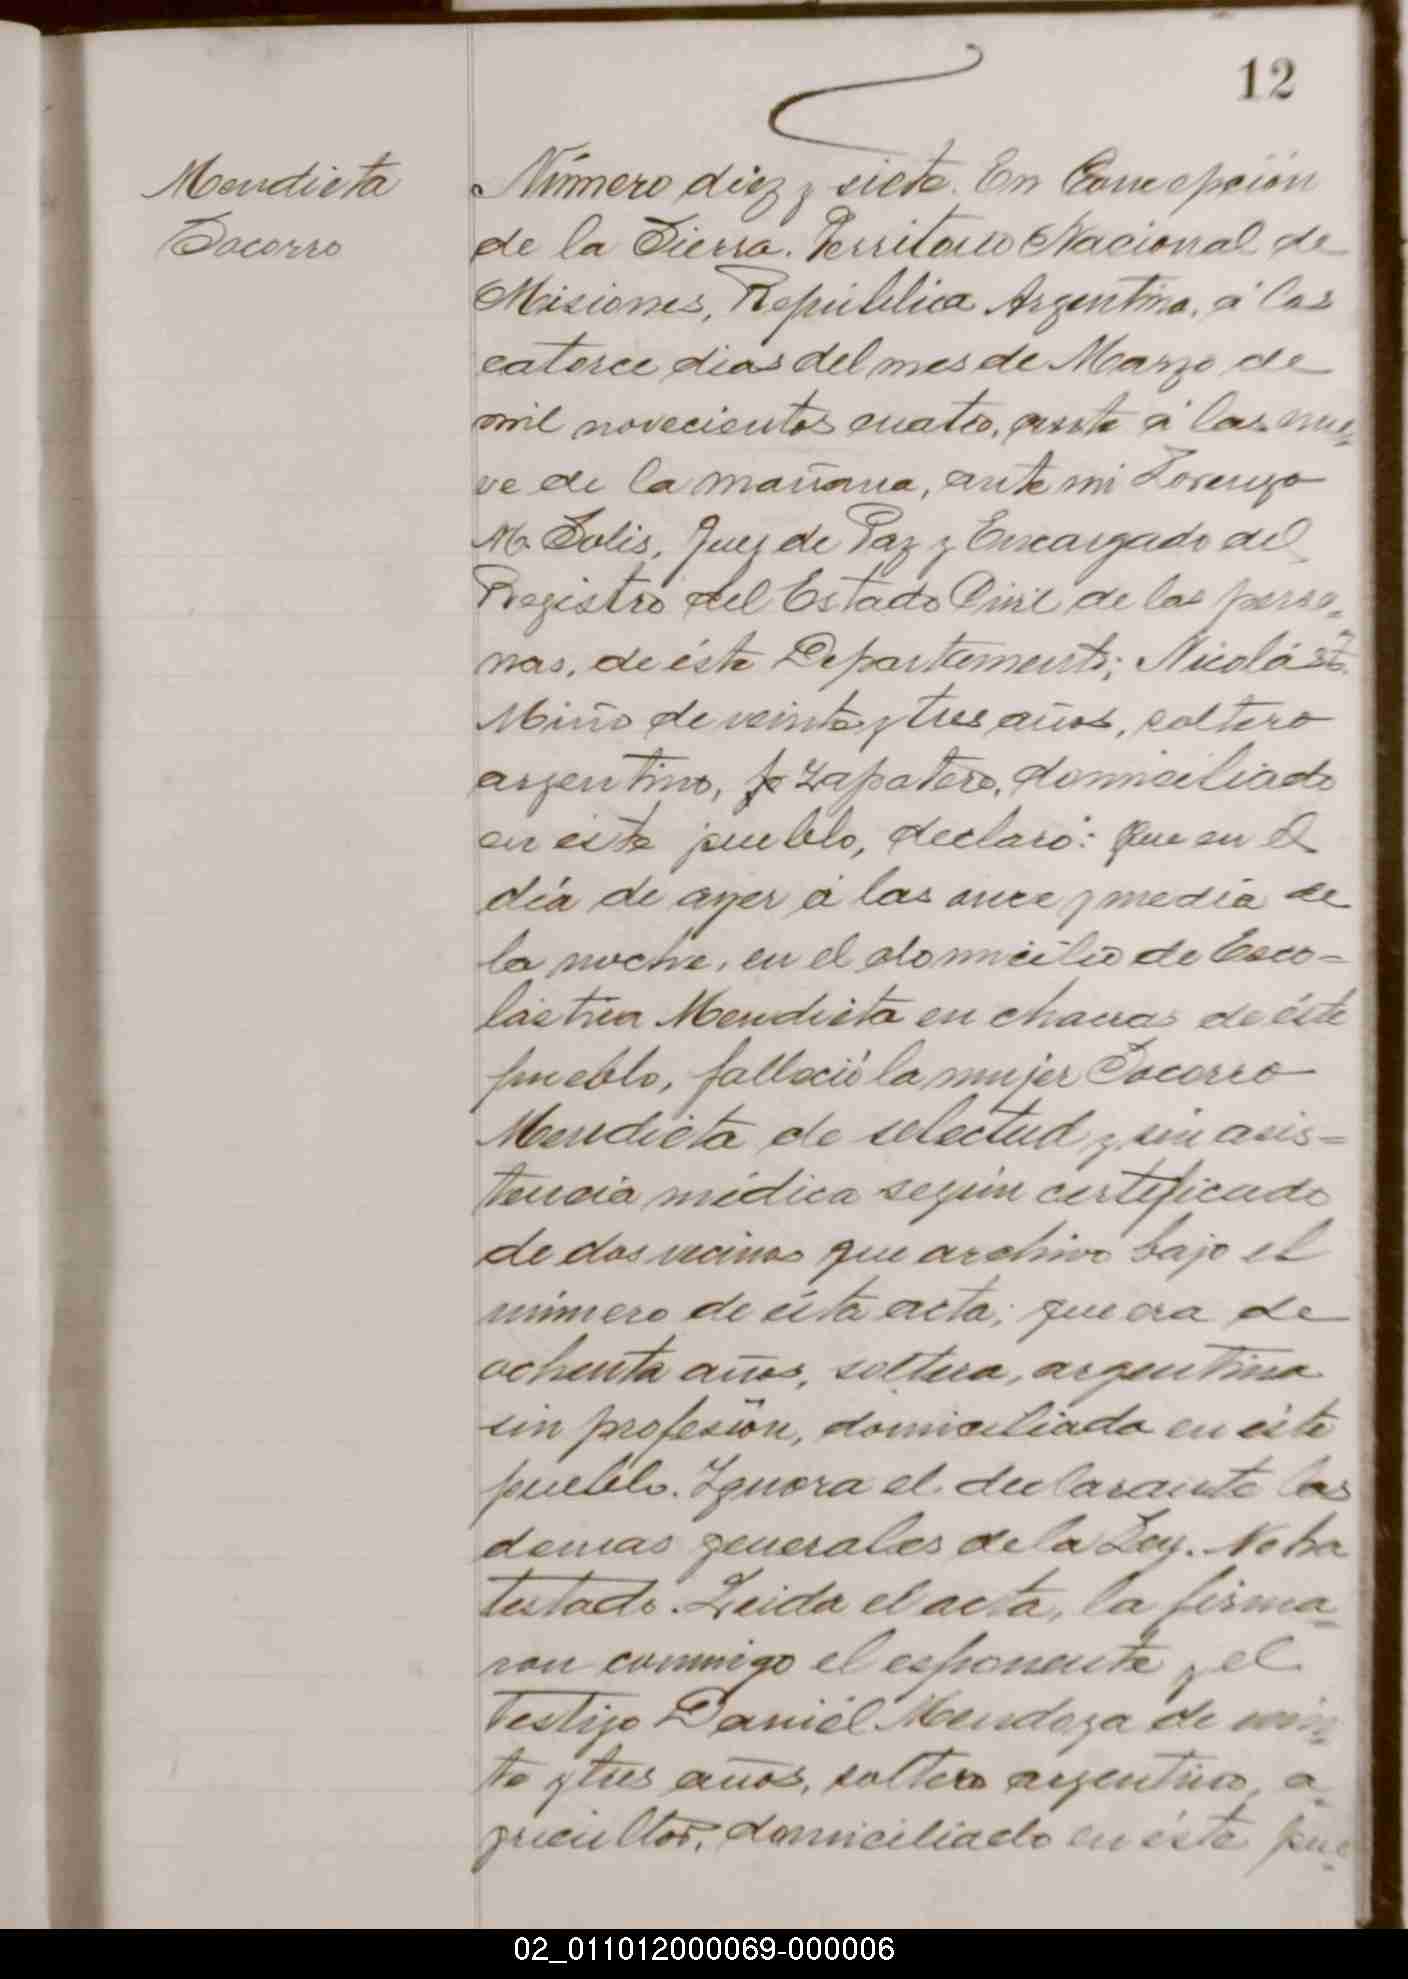 12
Mendieta
Socorro
Número diez y siete. En Concepción
de la Sierra. Territorio Nacional de
Misiones, República Argentina, á los
catorce dias del mes de Marzo de
mil novecientos cuatro, á las nue-
ve de la mañana, ante mi Lorenzo
M. Solis, Juez de Paz y Encargado del
Registro del Estado Civil de las perso-
nas, de éste Departamento; Nicolás
Miño de veinte y tres años, soltero
argentino, zapatero, domiciliado
en éste pueblo, declaró: Que en el
día de ayer á las once y media de
la noche, en el domicilio de Esco-
lástica Mendieta en chacras de éste
pueblo, falleció la mujer Socorro
Mendieta de selectud y sin asis-
tencia médica según certificado
de dos vecinos que archivo bajo el
número de ésta acta; que era de
ochenta años, soltera, argentina
sin profesión, domiciliada en éste
pueblo. Ignora el declarante las
demas generales de la Ley. No ha
testado. Leida el acta, la firma-
ron conmigo el esponente y el
testigo Daniél Mendoza de vein-
te y tres años, soltero argentino, a-
gricultor, domiciliado en éste pue-
02_011012000069-000006